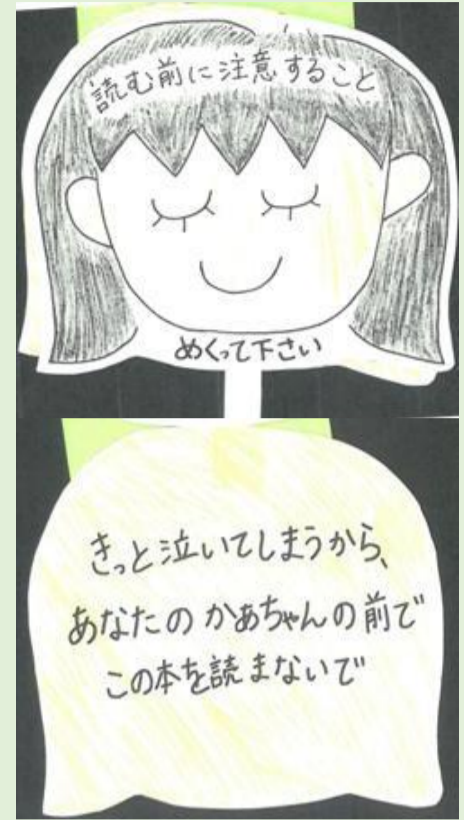 読む前に注意すること
めくって下さい
きっと泣いてしまうから、
あなたの かあちゃんの前で
この本を読まないで